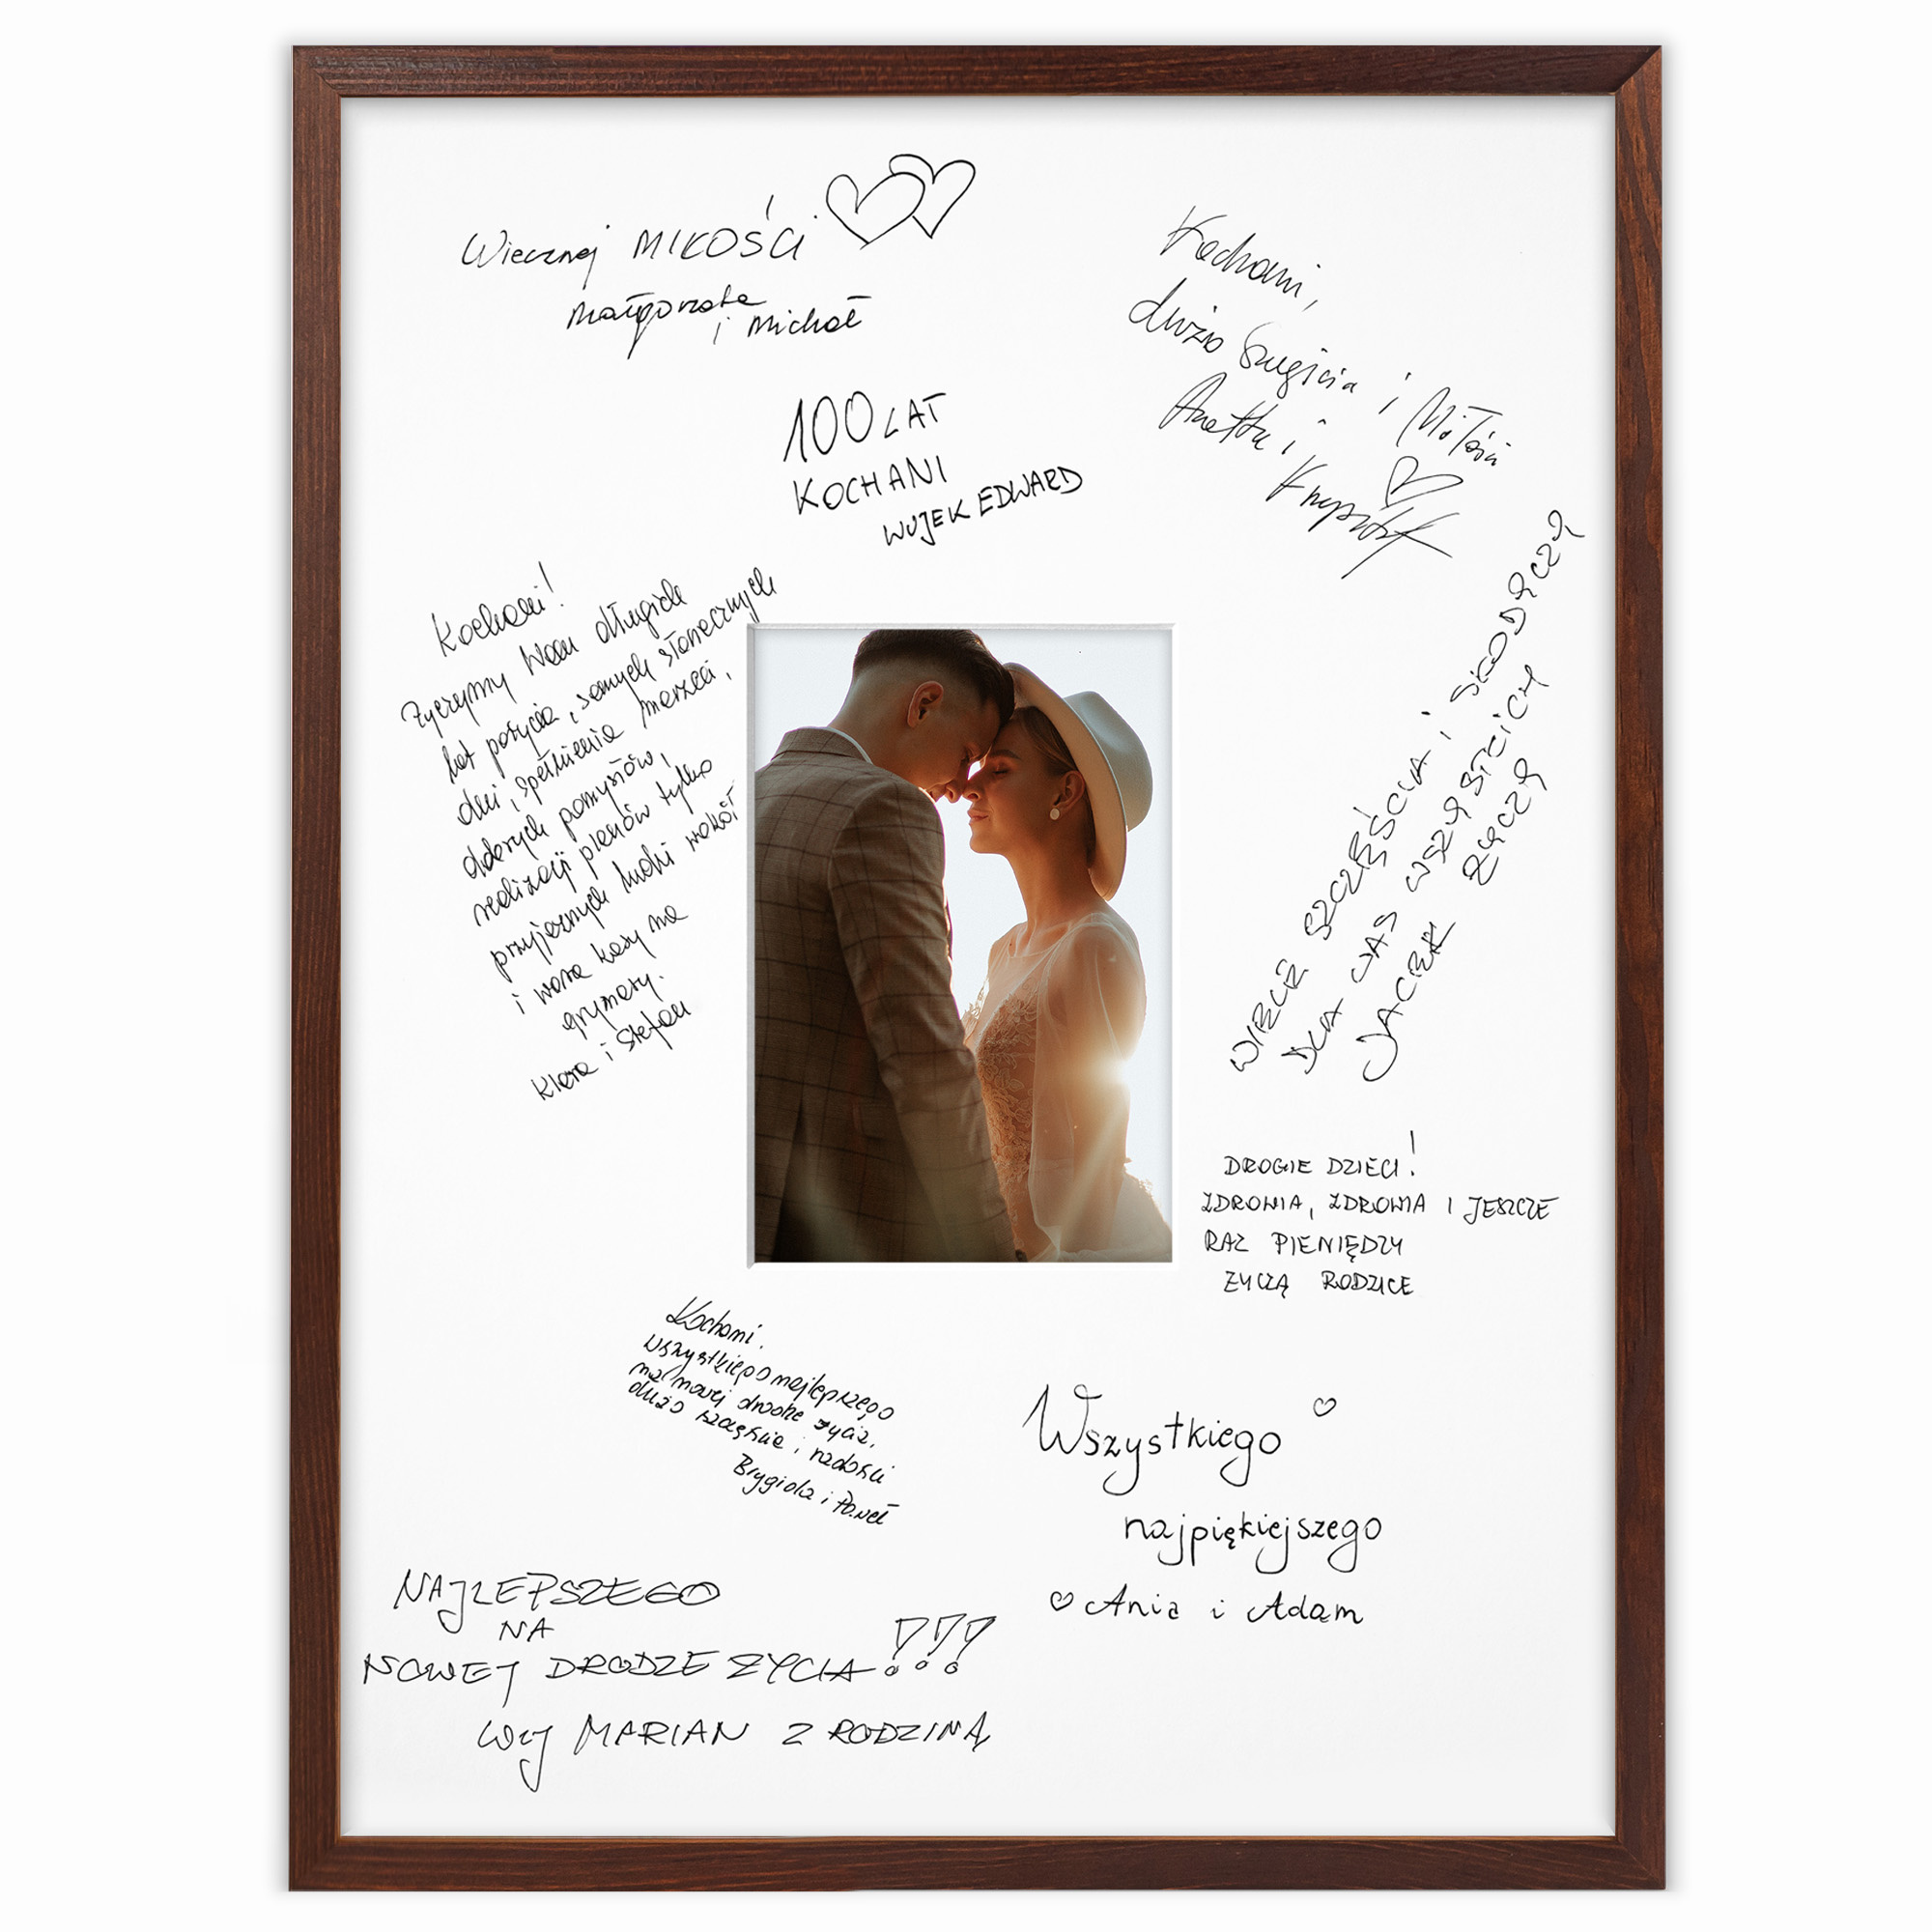 Wiecznej MIŁOŚCI
Małgorzata
i Michał
Kochani,
dużo Szczęścia i Miłości
Anetta i
Krzysztof
100 LAT
KOCHANI
WUJEK EDWARD
Kochani!
Życzymy Wam długich
lat pożycia, samych słonecznych
dni, spełnienia marzeń,
dobrych pomysłów,
realizacji planów tylko
przyjaznych ludzi wokół
i wora kasy na
grymasy.
Klara i Stefan
WIECIE SZCZĘŚCIA I SŁODYCZY
DLA WAS WSZYSTKICH
JACEK ŻYCZY
DROGIE DZIECI!
ZDROWIA, ZDROWIA I JESZCZE
RAZ PIENIĘDZY
ŻYCZĄ RODZICE
Kochani!
wszystkiego najlepszego
na nowej drodze życia,
dużo szczęścia i radości
Brygida i Paweł
Wszystkiego
najpiękniejszego
Ania i Adam
NAJLEPSZEGO
NA
NOWEJ DRODZE ŻYCIA!!!
Wuj MARIAN Z RODZINĄ